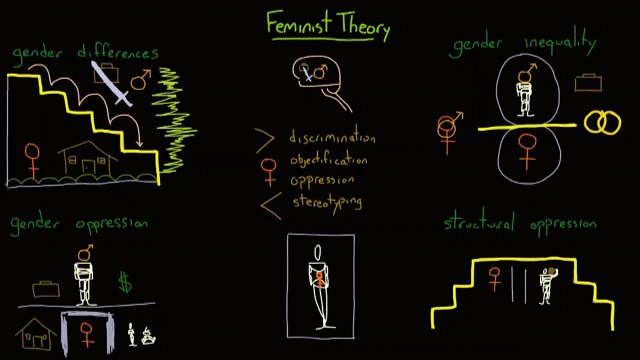 Feminist Theory
gender differences
gender inequality
discrimination
objectification
oppression
stereotyping
gender oppression
$
structural oppression